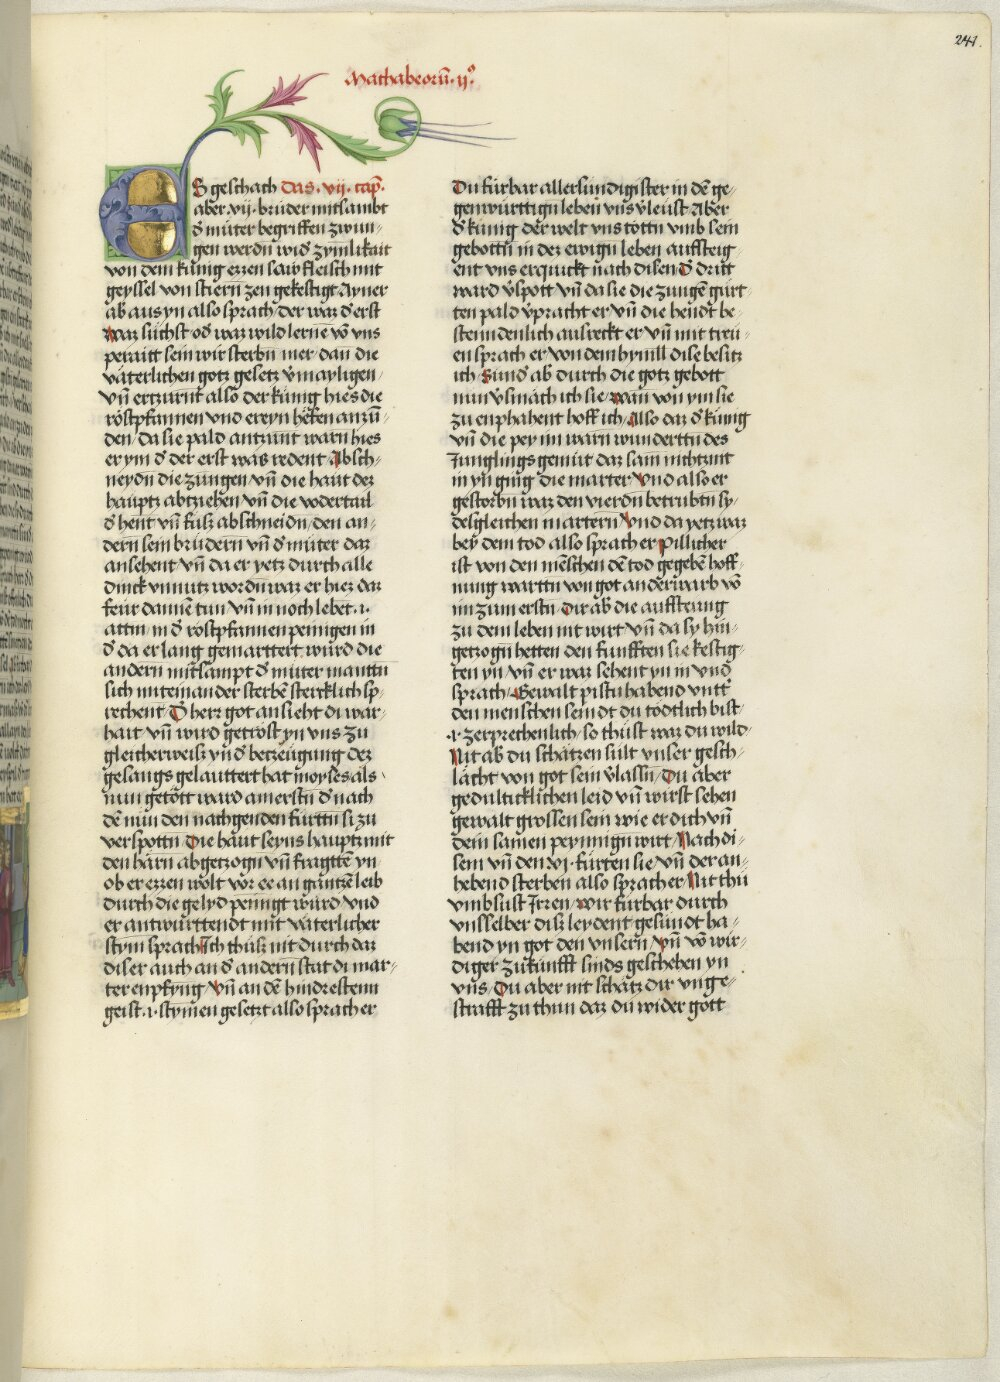 241.
Machabeorū · ij°
ES geschach das · vij · cap̄.
aber · vij · brüder mitsambt
d' müter begriffen zwun⸗
gen werdn̄ wid' zymlikait
von dem kunig essen saw fleisch mit
geyssel von stiern zen gekestigt Ayner
ab aus yn also sprach der waz d' erst
waz süchst od' waz wild lerne vō vns
peraitt sein wir sterbn̄ mer dan die
väterlichen gotz gesetz v̄mayligen
vn̄ erczürnt also der kunig hies die
röstpfannen vnd ereyn hëfen anzü⸗
den / da sie pald antzunt warn hies
er ym d' der erst was redent Absch⸗
neydn die zungen vn̄ die haut des
haupts abtziehen vn̄ die vodertail
d' hent vn̄ füsz abschneidn / den an⸗
dern sein brüdern vn̄ d' müter daz
ansehent vn̄ da er yetz durch alle
dinck vnnutz wordn̄ waz er hiez daz
feür dannē tun vn̄ in noch lebet · i ·
attm / in d' röstpfannen peinigen in
d' da er lang gemarttert würd die
andern mitsampt d' müter mantn̄
sich miteinander sterbē stercklich sp⸗
rechent / D' herr got ansieht di war⸗
hait vn̄ wird getröst yn vns zu
gleicherweisz yn d' betzeugung dez
gesangs gelauttert hat moyses als
nun getött ward am erstn̄ d' nach
dē nun den nachgenden fürttn si zu
verspottn̄ Die haut seyns hauptz mit
den hărn abgetzogn̄ vn̄ fragttē yn
ob er essen wolt vor ee an gantzē leib
durch die gelyd peinigt würd vnd
er antwürttendt mit väterlicher
stym sprach Ich thüsz nit durch daz
diser auch an d' andern stat di mar⸗
ter enpfyng / Vn̄ an dē hindrestenn
geist · i · stymen gesetzt also sprach er
Du fürbar allersündigister in dē ge⸗
genwürttign̄ leben vns v̄leüst Aber
d' kunig der welt vns töttn̄ vmb sein
gebottn̄ in dez ewign̄ leben aufsteig⸗
ent vns erquickt nach disen D' dritt
ward v̄spott vn̄ da sie die zungē gürt⸗
ten pald v̄pracht er vn̄ die hendt be⸗
stenndenlich ausreckt er vn̄ mit treü⸗
en sprach er / von dem hymll dise besitz
ich Sund' ab durch die gotz gebott
nun v̄smäch ich sie / wan̄ von ym sie
zu enphahent hoff ich / Also daz d' kunig
vn̄ die pey im warn wunderttn̄ des
Junglings gemüt daz sam nichtznit
in yn ging die marter / Vnd also er
gestorbn̄ waz den vierdn̄ betrubtn sy
desgleichen martern Vnd da yetz waz
bey dem tod also sprach er Pillicher
ist von den mēschen dē tod gegebē hoff⸗
nung warttn von got anderwarb vō
im zum erstn / Dir ab die aufsteung
zu dem leben nit wirt vn̄ da sy hin⸗
getzogn̄ hetten den fünfften sie kestig⸗
ten yn / vn̄ er waz sehent yn in vnd
sprach / Gewalt pistu habend vntt'
den menschen seindt du tödtlich bist
· i · zerprechenlich / so thüst waz du wild
Nit ab du schätzen sült vnser gesch⸗
lächt von got sein v̄lassn̄ / Du aber
gedulticklichen leid vn̄ wirst sehen
gewalt grossen sein wie er dich vn̄
dein samen peynnign̄ wirt / Nach di⸗
sem vn̄ den vj · fürten sie / vn̄ der an⸗
hebend sterben also sprach er / Nit thü
vmbsust Irren / wir fürbar durch
vnsselber disz leydent gesündt ha⸗
bend yn got den vnsern / Vn̄ vō wir⸗
diger zukünfft sinds geschehen yn
vns / Du aber nit schätz dir vnge⸗
strafft zu thun daz du wider gott